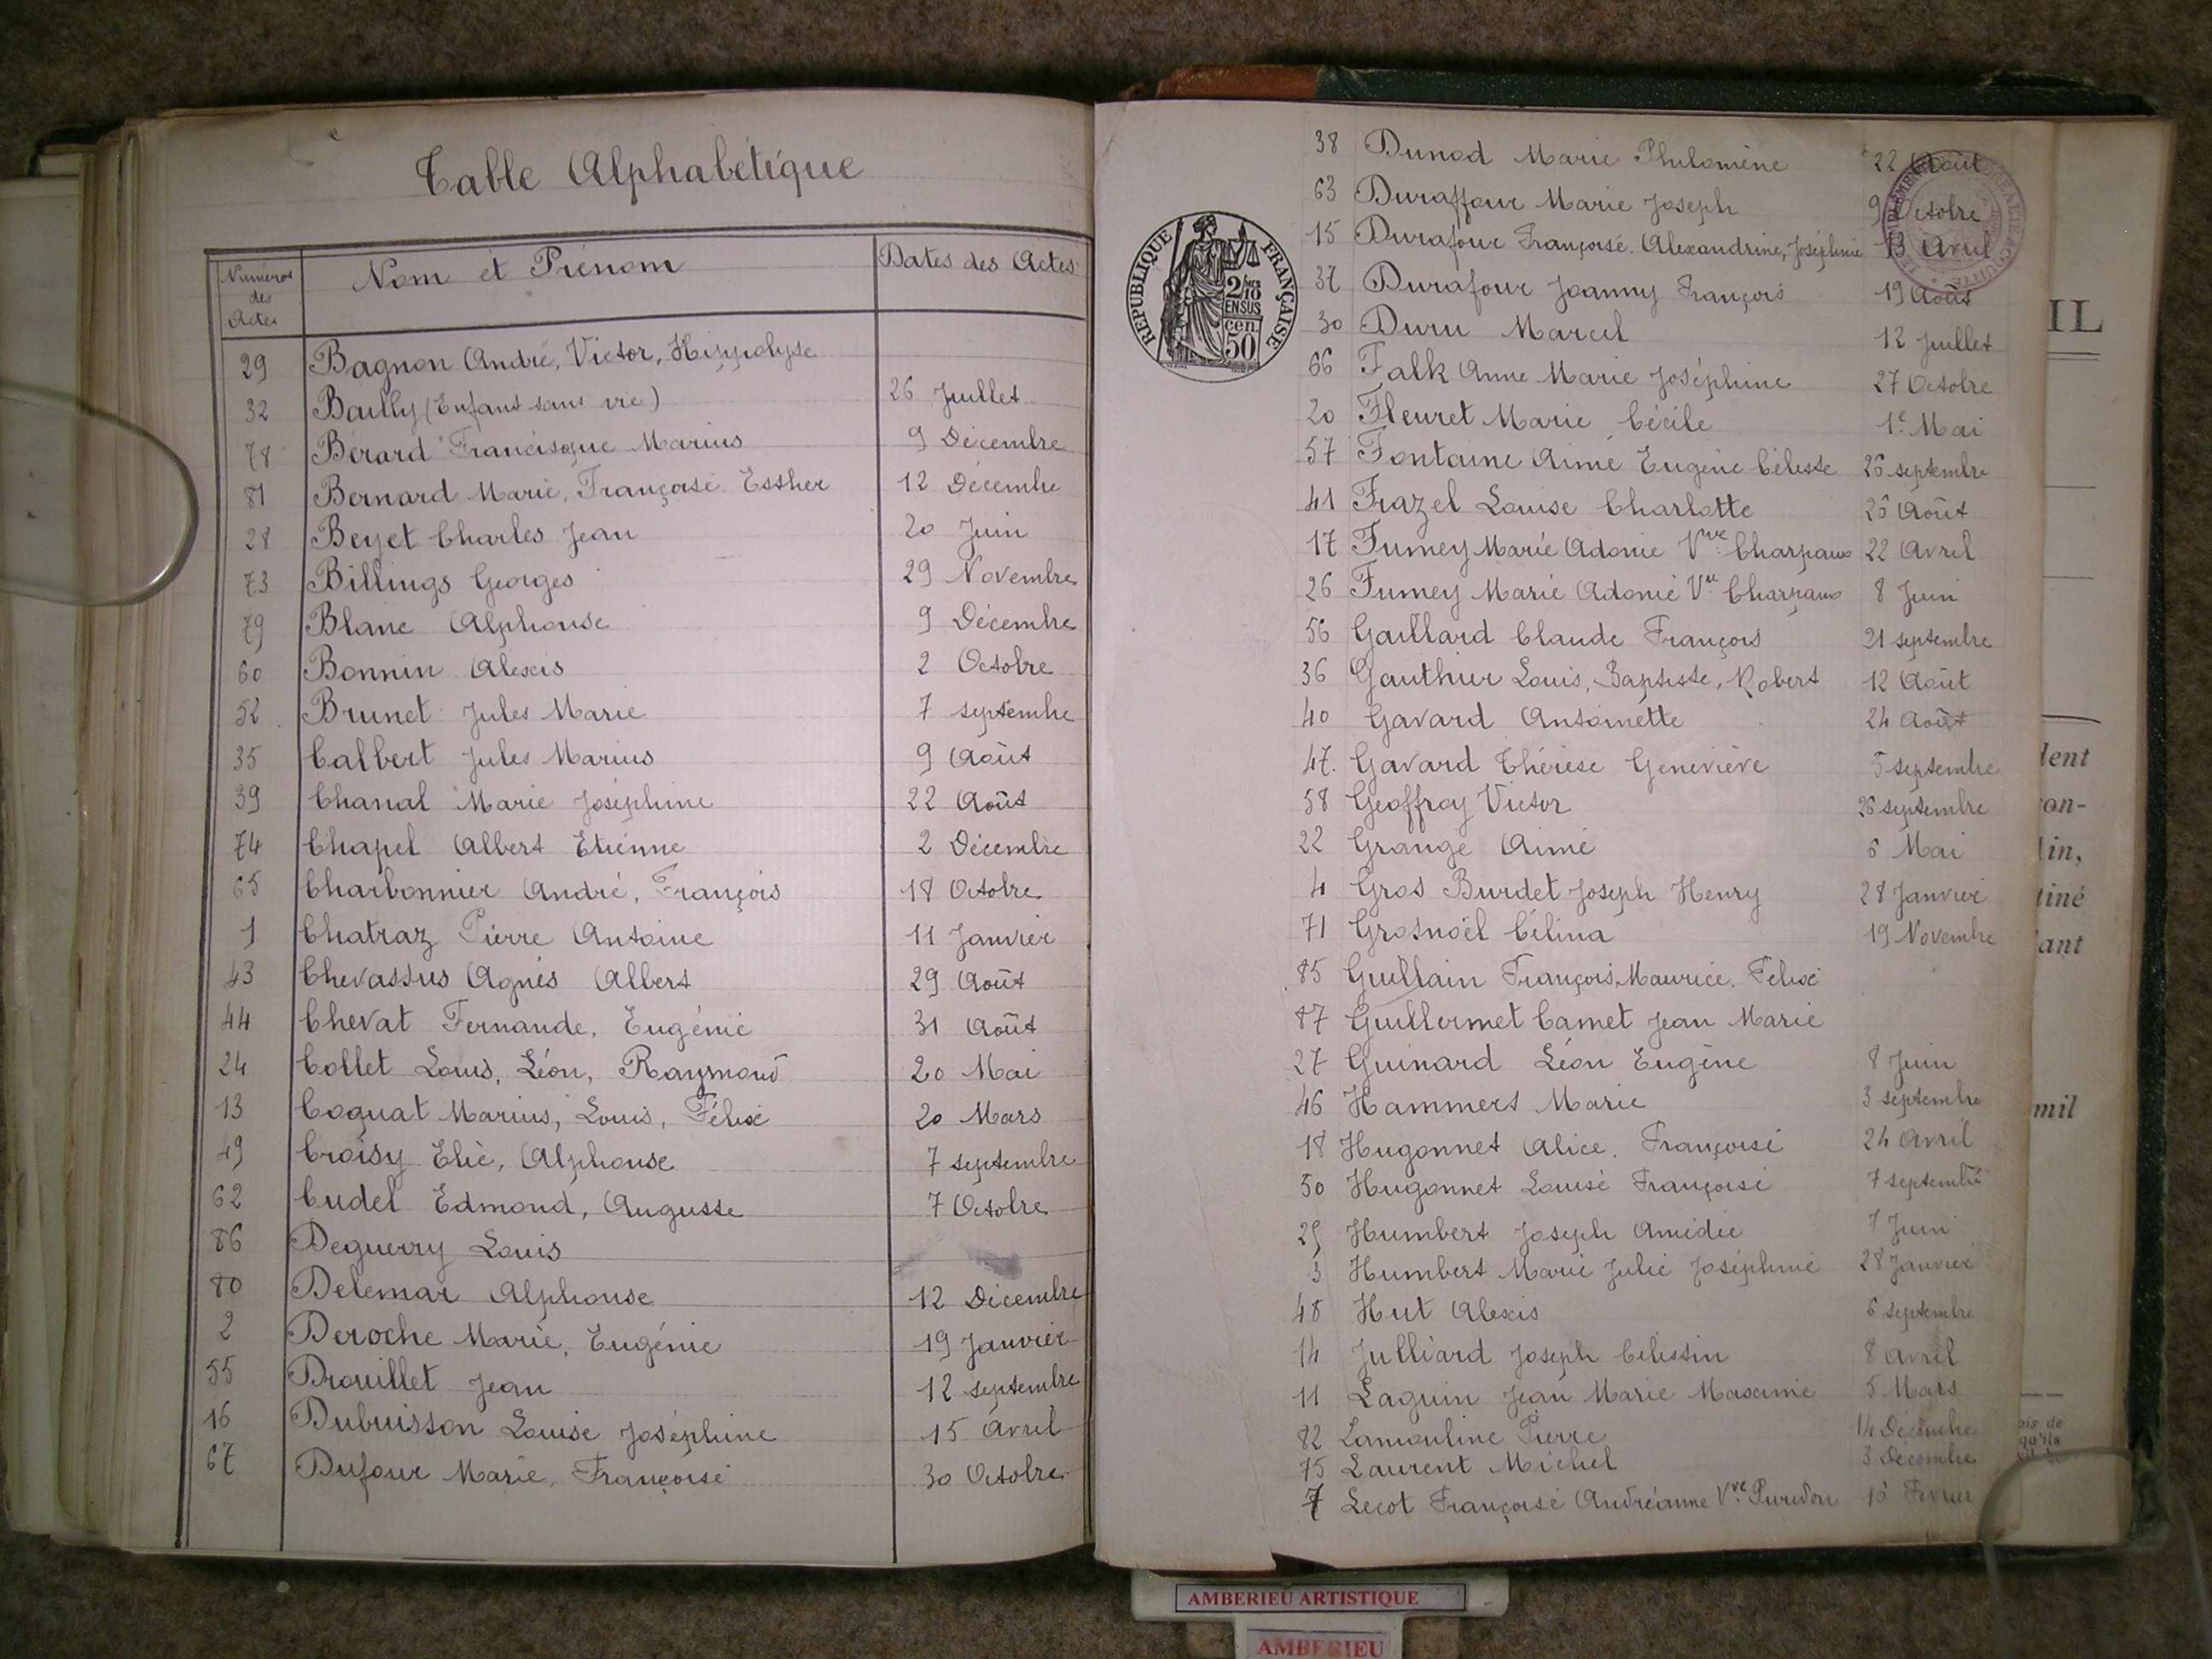 Table Alphabétique
Numéros des Actes
Nom et Prénom
Dates des Actes
29 Bagnon André, Victor, Hippolyte
32 Bailly (Enfant sans vie) 26 Juillet
78 Bérard Francisque Marius 9 Décembre
81 Bernard Marie, Françoise Esther 12 Décembre
28 Beyet Charles Jean 20 Juin
73 Billings Georges 29 Novembre
79 Blanc Alphonse 9 Décembre
60 Bonnin Alexis 2 Octobre
52 Brunet Jules Marie 7 septembre
35 Calbert Jules Marius 9 Août
39 Chanal Marie Joséphine 22 Août
74 Chapel Albert Etienne 2 Décembre
65 Charbonnier André, François 18 Octobre
1 Chatraz Pierre Antoine 11 Janvier
43 Chevassus Agnès Albert 29 Août
44 Chevat Fernande, Eugénie 31 Août
24 Collet Louis, Léon, Raymond 20 Mai
13 Coquat Marius, Louis, Félix 20 Mars
49 Croisy Elie, Alphonse 7 septembre
62 Cudel Edmond, Auguste 7 Octobre
86 Deguerry Louis
80 Delemar Alphonse 12 Décembre
2 Deroche Marie, Eugénie 19 Janvier
55 Drouillet Jean 12 septembre
16 Dubuisson Louise Joséphine 15 Avril
67 Dufour Marie, Françoise 30 Octobre
REPUBLIQUE FRANÇAISE
2/10 EN SUS
50 cen
38 Dunod Marie Philomène 22 Août
63 Duraffour Marie Joseph 9 Octobre
15 Durafour Françoise. Alexandrine, Joséphine 13 Avril
37 Durafour Joanny François 19 Août
30 Duru Marcel 12 Juillet
66 Falk Anne Marie Joséphine 27 Octobre
20 Fleuret Marie Cécile 1e Mai
57 Fontaine Aimé Eugène Céleste 26 septembre
41 Frazel Louise Charlotte 25 Août
17 Fumey Marie Adonie Vve Charpaux 22 Avril
26 Fumey Marie Adonie Ve Charpaux 8 Juin
56 Gaillard Claude François 21 septembre
36 Gauthier Louis, Baptiste, Robert 12 Août
40 Gavard Antoinette 24 Août
47. Gavard Thérèse Geneviève 5 septembre
58 Geoffray Victor 26 septembre
22 Grange Aimé 6 Mai
4 Gros Burdet Joseph Henry 28 Janvier
71 Grosnoël Célina 19 Novembre
85 Guillain François, Maurice, Félix
87 Guillermet Camet Jean Marie
27 Guinard Léon Eugène 8 Juin
46 Hammers Marie 3 septembre
18 Hugonnet Alice, Françoise 24 Avril
50 Hugonnet Louise Françoise 7 septembre
25 Humbert Joseph Amédée 7 Juin
3 Humbert Marie Julie Joséphine 28 Janvier
48 Hut Alexis 6 septembre
14 Julliard Joseph Célestin 8 Avril
11 Laguin Jean Marie Maxime 5 Mars
82 Lamouline Pierre 14 Décembre
75 Laurent Michel 3 Décembre
7 Lecot Françoise Andréanne Vve 10 Février
IL
dent
on-
lin,
tiné
ant
mil
ois de
qu'ils
AMBERIEU ARTISTIQUE
AMBERIEU